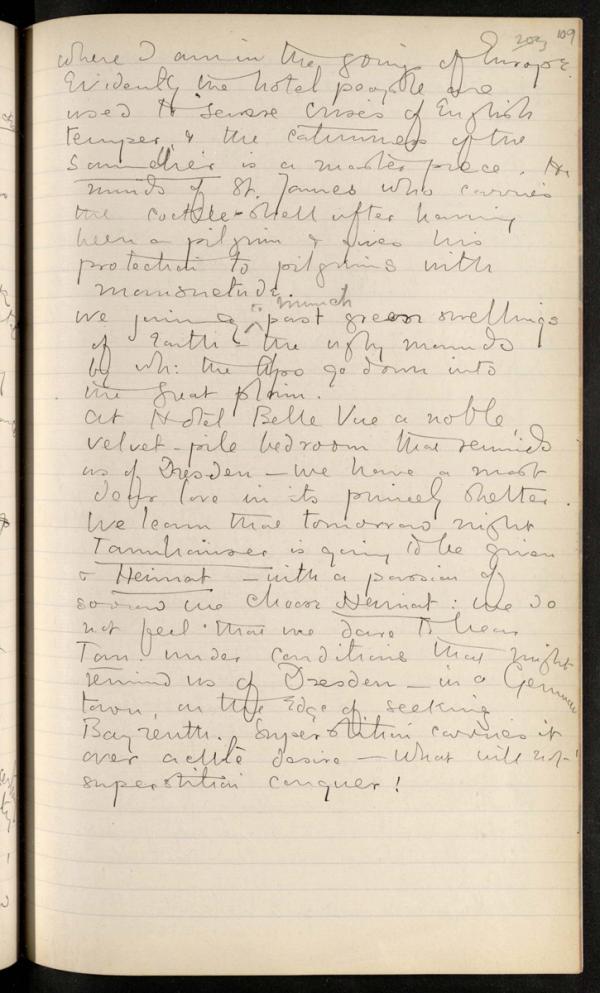 203 109
where I am in the going of Europe.
Evidently the hotel people are
used to severe crises of English
temper, & the calmness of the
is a master piece. He
minds of St. James who carries
the cockle-shell after having
been a pilgrim & gives his
protection to pilgrims with
mansuetude.
Munich
We past green swellings
of Earth – the ugly mounds
by wh: the Alps go down into
the great plain.
At Hotel Belle Vue a noble,
velvet-pile bedroom that reminds
us of Dresden – we have a most
dear love in its princely shelter.
We learn that tomorrow night
Tannhäuser is going to be given
& Heimat – with a passion of
sorrow we choose Heimat: we do
not feel that we dare to hear
Tan. under conditions that might
remind us of Dresden – in a German
town, on the Edge of seeking
Bayreuth. Superstition carries it
over acute desire – What will not
superstition conquer!